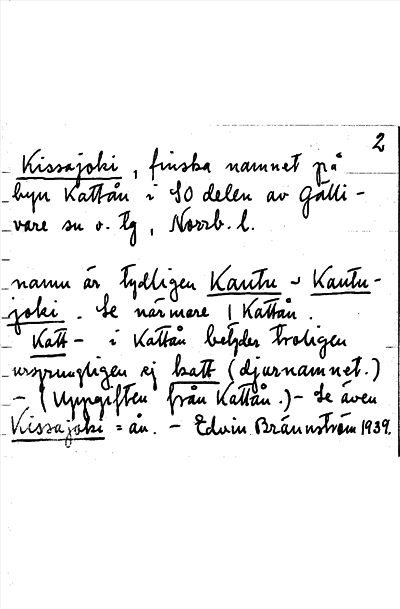 2
Kissajoki, finska namnet på
byn Kattån i SO delen av Gälli-
vare sn o. tg, Norrb. l.
namn är tydligen Kautu ~ Kautu-
joki. Se närmare 1 Kattån.
Katt- i Kattån betyder troligen
ursprungligen ej katt (djurnamnet.)
- (Uppgiften från Kattån.) - Se även
Kissajoki = ån. - Edvin Brännström 1939.